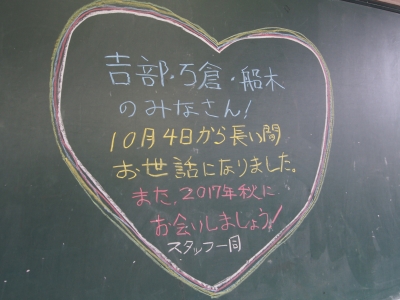 吉部・万倉・船木
のみなさん!
10月4日から長い間
お世話になりました。
また、2017年秋に
お会いしましょう!
スタッフ一同